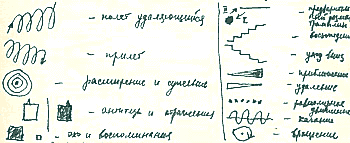 – полет удаляющийся
– прилет
– расширение и сужение
– антитух и отражения
– эхо и воспоминания
восхождение
уход вниз
– приближение
– удаление
– равномерное
движение
– качание
– вращение